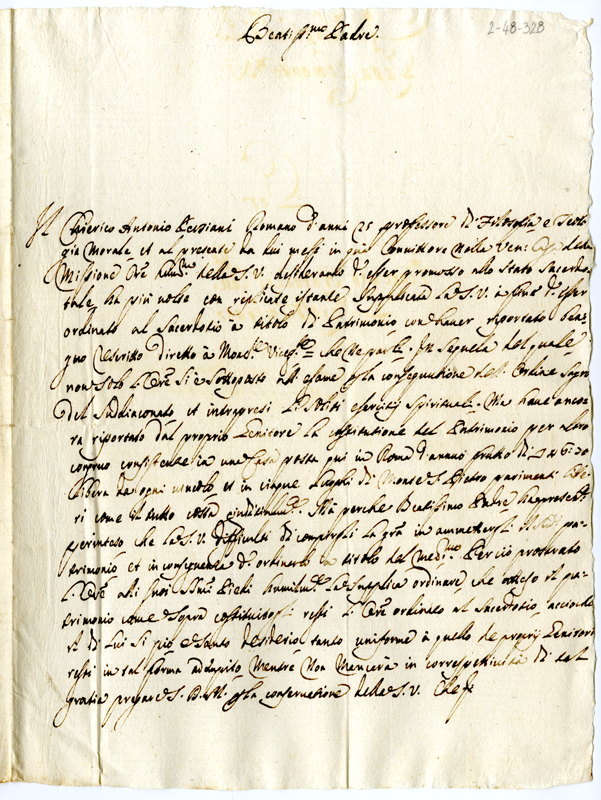 2-48-328
Beatiss.mo Padre.
Il Chierico Antonio Romano d'anni 25 professore di Filosofia e Teolo-
gia Morale, et al presente da due mesi in qua Convittore nella Ven: della
Missione Ore humil.mo della S. V. desiderando d'esser promosso allo Stato Sacerdo-
tale, ha più volte con replicate istanze supplicata la S. V. à fine d'esser
ordinato al Sacerdotio à titolo di Patrimonio con haver riportato beni-
gno Rescritto diretto à Mons.r Viceg.te che ne parli. In sequela del quale
non solo l'Ore si è sottoposto all'esame p la consequutione dell'Ordine Sagro
del Suddiaconato et intrapresi li soliti esercitij spirituali. Ma have anco-
ra riportato dal proprio Genitore la costitutione del Patrimonio per altro
congruo consistente in una Casa posta qui in Roma d'annuo frutto di
libera da ogni vincolo et in cinque luoghi di Monte S. Pietro parimenti libe-
ri come il tutto costa giuditialm.te Mà perche Beatissimo Padre hà presen-
che la S. V. difficulti di compirgli la gra in ammettergli il pa-
trimonio et in conseguenza d'ordinarlo in titolo del med.mo Perciò prostrato
l'Ore alli suoi SSmi Piedi humilm.te la supplica ordinare, che atteso il pa-
trimonio come sopra costituitogli resti l'Ore ordinato al Sacerdotio, accioche
il di lui si pio e santo desiderio tanto uniforme à quello de proprij Genitori
resti in tal forma adempito mentre non mancerà in corrispettività di tal
gratia pregare S. D. M. p la conservatione della S. V. Che